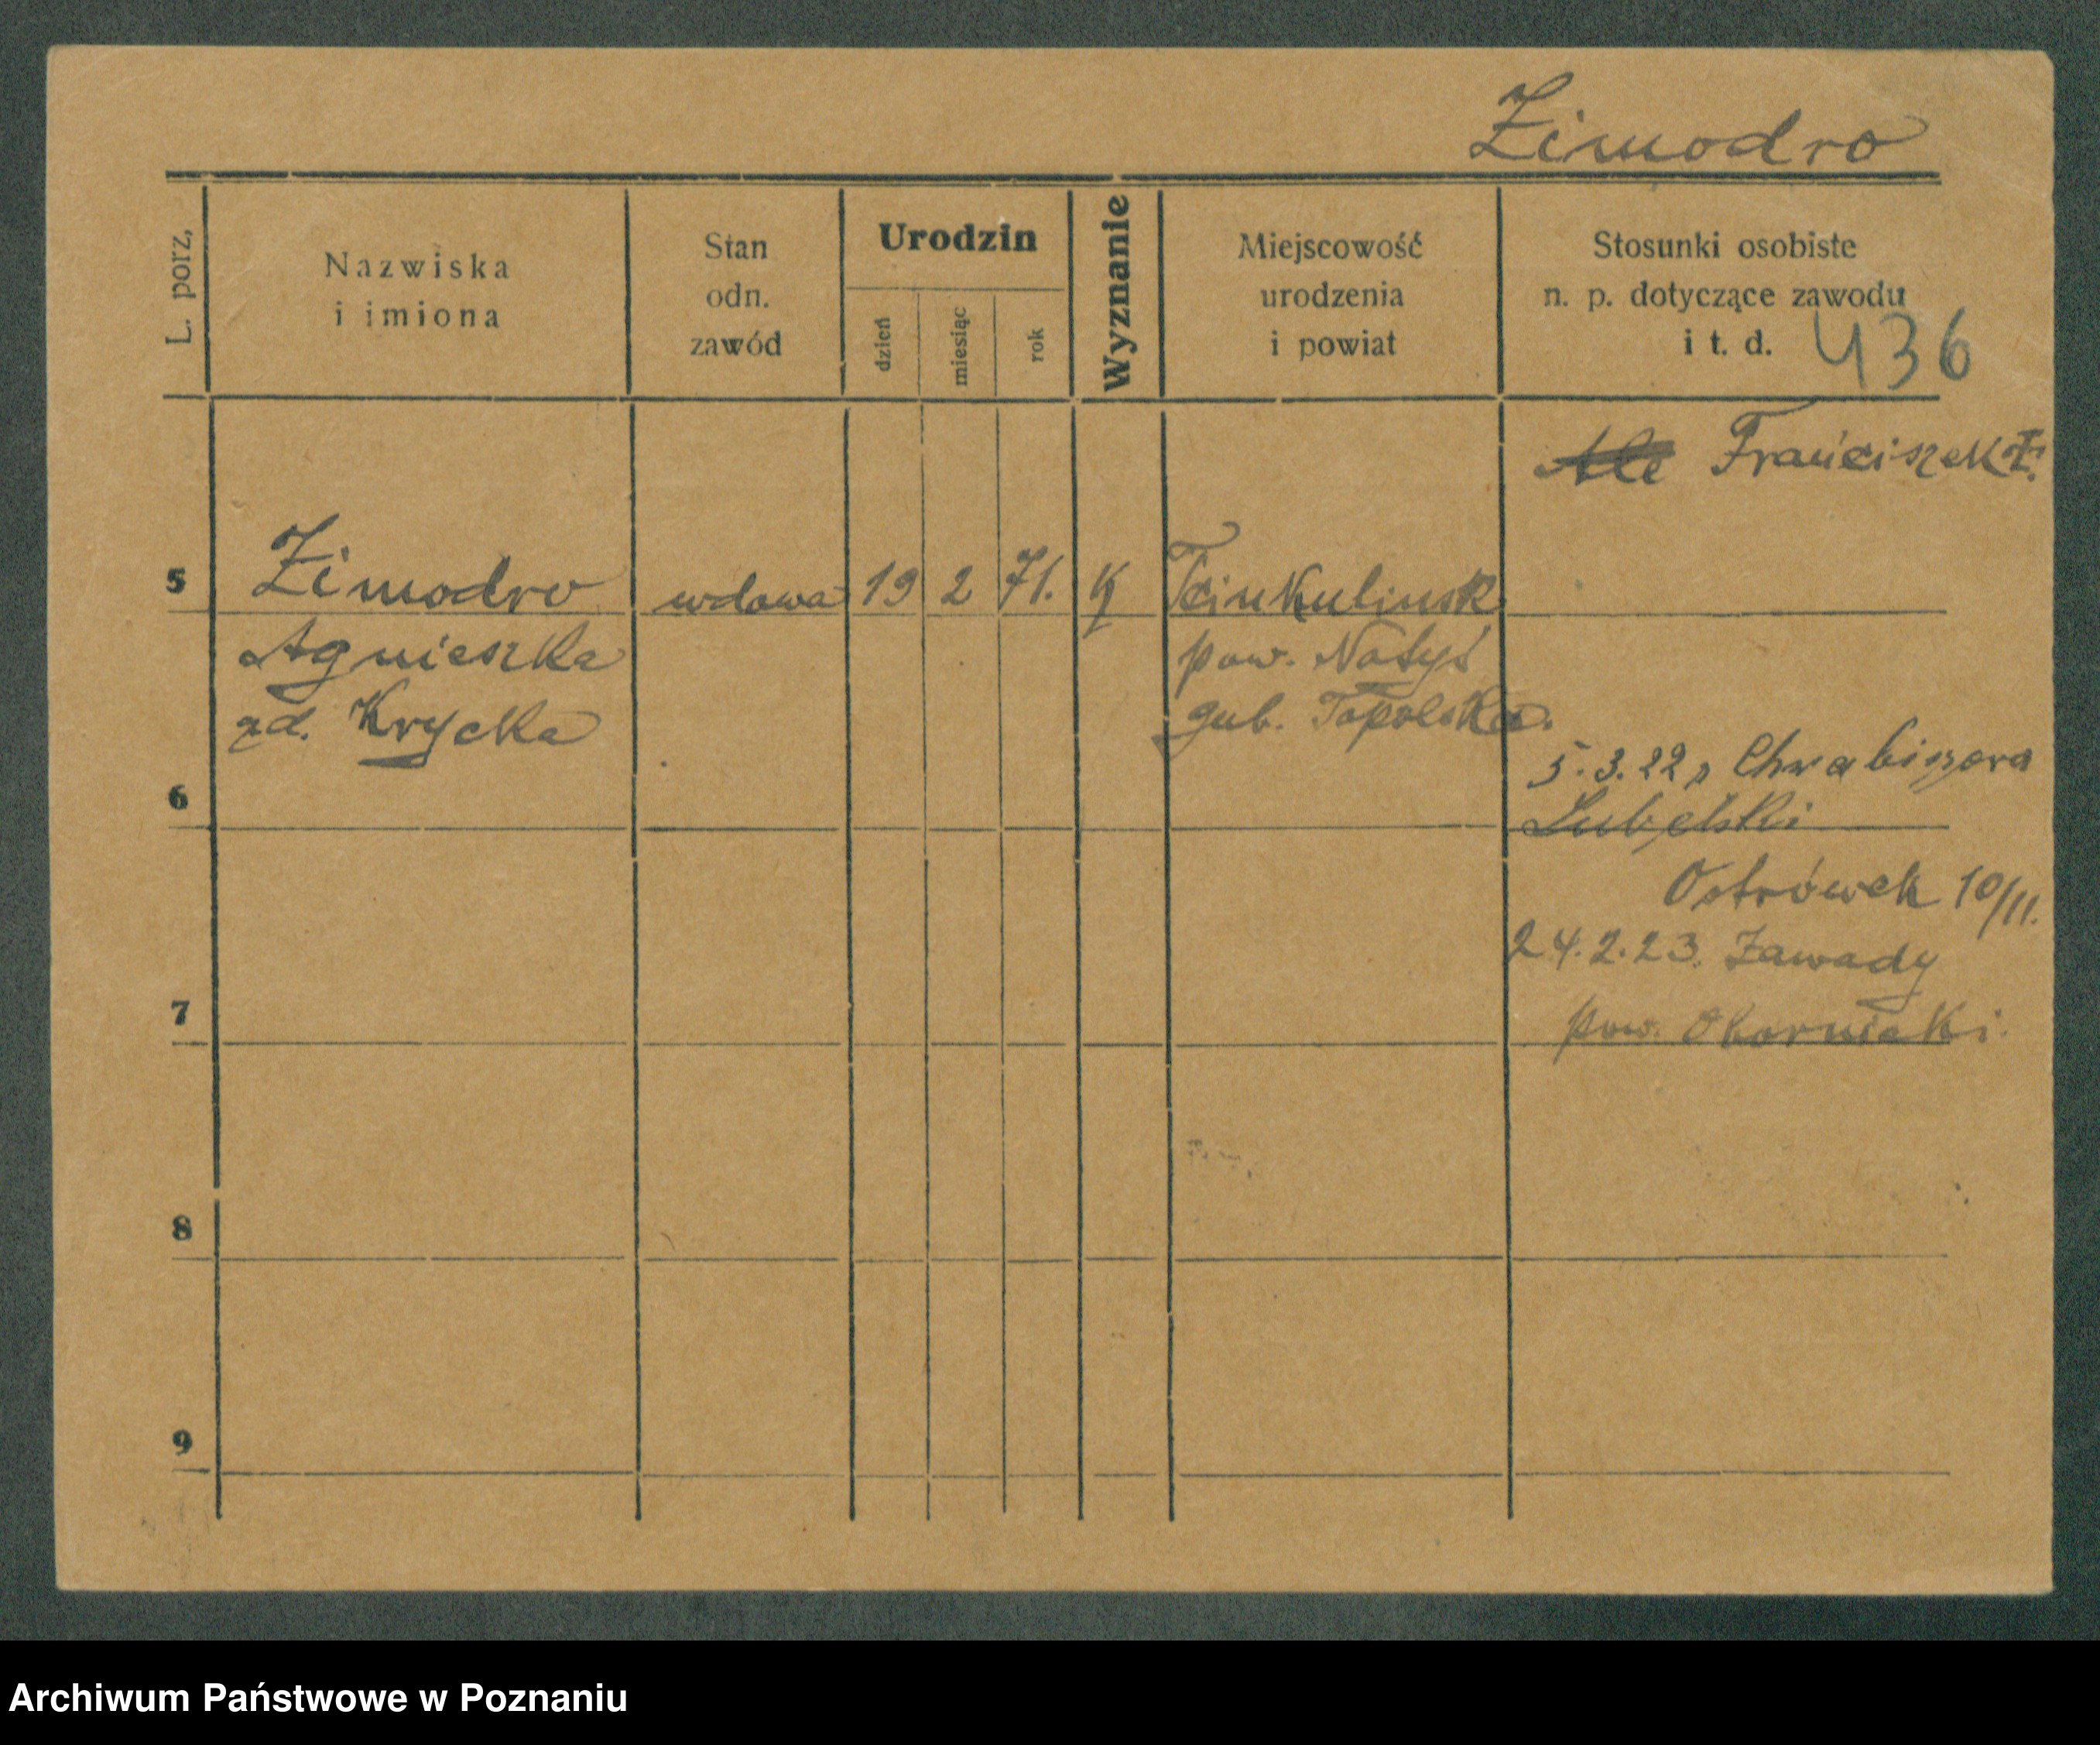 Zimodro
L. porz,
Nazwiska
i imiona
Stan
odn.
zawód
Urodzin
dzień
miesiąc
rok
Wyznanie
Miejscowość
urodzenia
i powiat
Stosunki osobiste
n. p. dotyczące zawodu
i t. d.
436
Franciszek Z.
5 Zimodro wdowa 19 2 71. K
Agnieszka
zd. Krycka
pow.
gub. Topolska.
5.3.22
6
Ostrówek 10/11.
24.2.23. Zawady
7
pow. Obornicki.
8
9
Archiwum Państwowe w Poznaniu